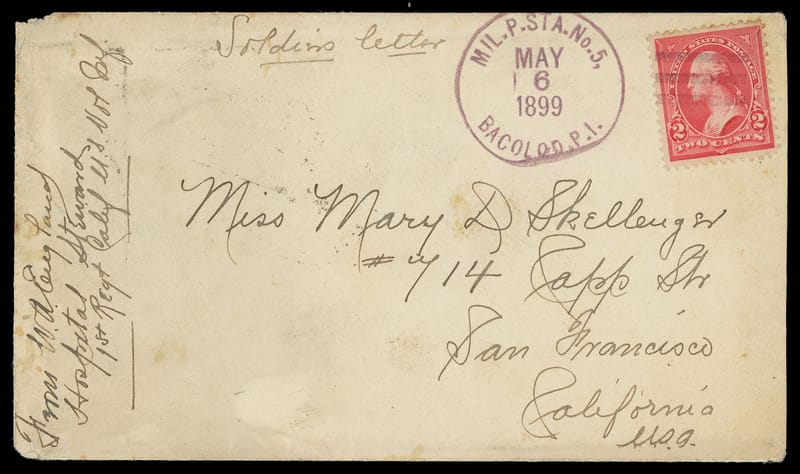 Soldiers letter
MIL. P. STA. No. 5,
MAY
6
1899
BACOLOD. P. I.
UNITED STATES POSTAGE
2 2
TWO CENTS
Miss Mary D Skellenger
#714 Capp Str
San Francisco
California
U.S.A.
From W. A. England
Hospital Steward
1st Regt Calif U S Vol Inf.